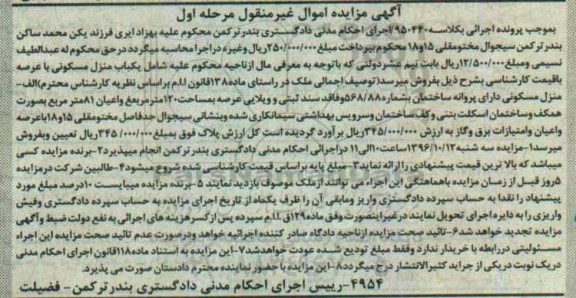 آگهی مزایده اموال غیرمنقول مرحله اول
بموجب پرونده اجرائی بکلاسه ۹۵۰۴۴۰ اجرای احکام مدنی دادگستری بندرترکمن محکوم علیه بهزاد ایری فرزند یکن محمد ساکن
بندرترکمن سیجوال مختومقلی ۱۵و۱۸ محکوم بپرداخت مبلغ ۲۵۰/۰۰۰/۰۰۰ریال وغیره دراجرا محاسبه میگردد درحق محکوم له عبداللطیف
نسیمی ومبلغ ۱۲/۵۰۰/۰۰۰ریال بابت نیم عشردولتی که باتوجه به معرفی مال ازناحیه محکوم علیه شامل یکباب منزل مسکونی با عرصه
باقیمت کارشناسی بشرح ذیل بفروش میرسد(توصیف اجمالی ملک در راستای ماده۱۳۸قانون ا.ا.م براساس نظریه کارشناس محترم)الف-
منزل مسکونی دارای پروانه ساختمان بشماره۵۶۸/۸۸ وفاقد سند ثبتی و ویلایی عرصه بمساحت۱۲۰مترمربع واعیان ۸۱متر مربع بصورت
همکف وساختمان اسکلت بتنی وکف ساختمان وسرویس بهداشتی سیمانکاری شده وبنشانی سیجوال حدفاصل مختومقلی ۱۵و۱۸باعرصه
واعیان وامتیازات برق وگاز به ارزش ۳۴۵/۰۰۰/۰۰۰ریال برآورد گردیده است کل ارزش پلاک فوق بمبلغ۳۴۵/۰۰۰/۰۰۰ ریال تعیین وبفروش
میرسد۱-مزایده سه شنبه ۱۳۹۶/۱۰/۱۲ساعت۱۰الی۱۱ دراجرائی احکام مدنی دادگستری بندر ترکمن انجام میپذیرد۲-برنده مزایده کسی
میباشد که بالا ترین قیمت پیشنهادی را ارائه نماید۳-مبلغ پایه براساس قیمت کارشناسی شده شروع میشود۴-طالبین شرکت درمزایده
۵روز قبل از زمان مزایده باهماهنگی این اجراء می توانند ازملک موصوف بازدید نمایند ۵-برنده مزایده میبایست ۱۰درصد مبلغ مورد
پیشنهاد را نقدا به حساب سپرده دادگستری واریز ومابقی آن را ظرف یکماه از تاریخ اجرای مزایده به حساب سپرده دادگستری وفیش
واریزی را به دایره اجرای تحویل نمایند درغیراینصورت وفق ماده۱۲۹ق.ا.ا.م سپرده پس ازکسرهزینه های اجرائی به نفع دولت ضبط وآگهی
مزایده تجدید خواهد شد۶-تائید صحت مزایده ازناحیه دادگاه صادر کننده اجرائیه خواهد ودرصورت عدم تائید صحت مزایده این اجراء
مسئولیتی دررابطه با خریدار ندارد وفقط مبلغ تودیع شده عودت خواهدشد۷-این مزایده به استناد ماده۱۱۸قانون اجرای احکام مدنی
دریک نوبت دریکی از جراید کثیرالانتشار درج میگردد۸-این مزایده با حضور نماینده محترم دادستان صورت می پذیرد.
۴۹۵۴-رییس اجرای احکام مدنی دادگستری بندرترکمن- فضیلت